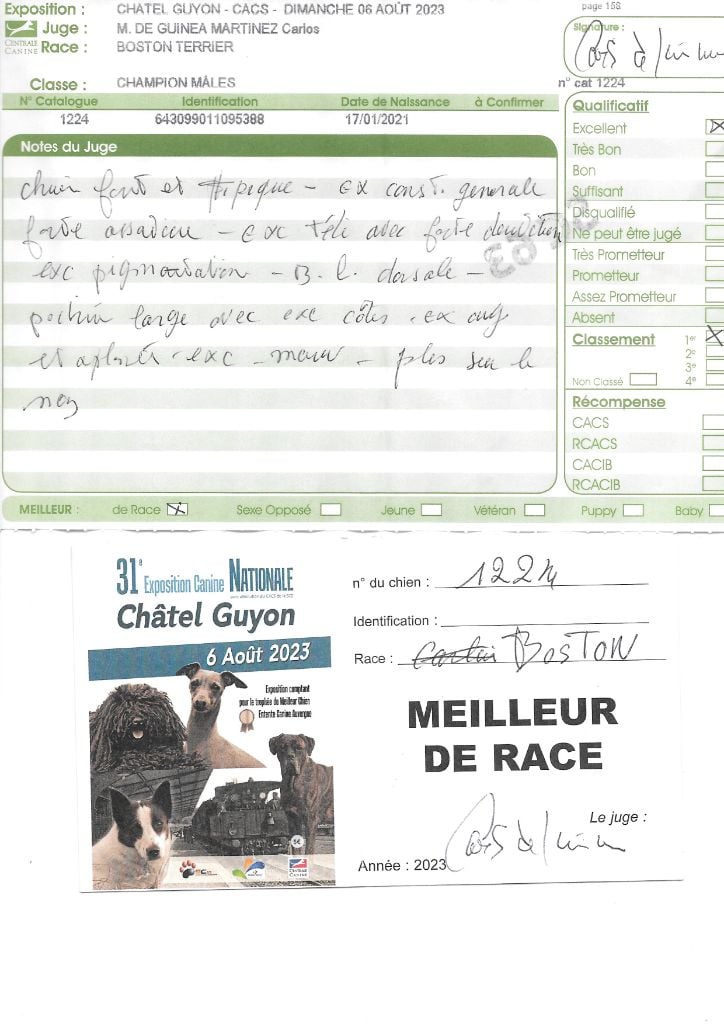 Exposition : CHATEL GUYON - CACS - DIMANCHE 06 AOÛT 2023
page 158
Juge : M. DE GUINEA MARTINEZ Carlos
Signature :
CENTRALE CANINE
Race : BOSTON TERRIER
Classe : CHAMPION MÂLES
n° cat 1224
N° Catalogue Identification Date de Naissance à Confirmer
1224 643099011095388 17/01/2021
Qualificatif
Excellent
Très Bon
Bon
Suffisant
Disqualifié
Ne peut être jugé
Très Prometteur
Prometteur
Assez Prometteur
Absent
Classement 1er
2e
3e
Non Classé 4e
Récompense
CACS
RCACS
CACIB
RCACIB
Notes du Juge
chien fort et typique - ex const. generale
forte ossature - exc tête avec forte dentition
exc pigmentation - B. l. dorsale -
poitrine large avec exc côtes - ex ang
et aplombs - exc - mouv - plis sur le
nez
MEILLEUR : de Race Sexe Opposé Jeune Vétéran Puppy Baby
31e Exposition Canine NATIONALE
Châtel Guyon
6 Août 2023
Exposition comptant
pour le trophée du Meilleur Chien
Entente Canine Auvergne
5€
CENTRALE CANINE
n° du chien : 1224
Identification :
Race : BOSTON
MEILLEUR
DE RACE
Le juge :
Année : 2023